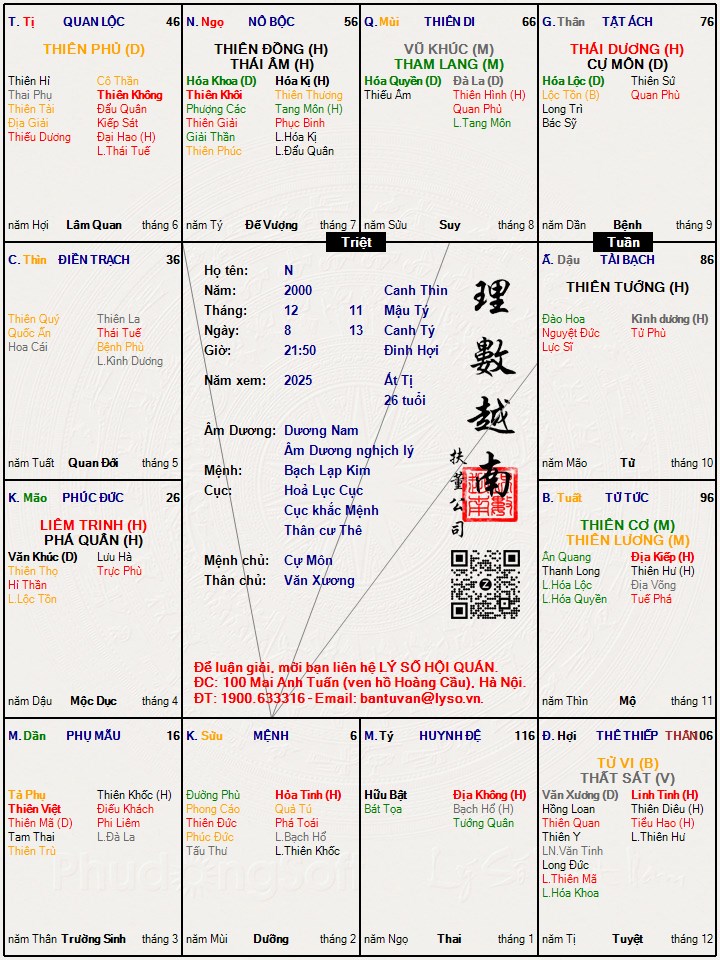 T. Tị QUAN LỘC 46
THIÊN PHỦ (D)
Thiên Hỉ Cô Thần
Thai Phụ Thiên Không
Thiên Tài Đẩu Quân
Địa Giải Kiếp Sát
Thiếu Dương Đại Hao (H)
L.Thái Tuế
năm Hợi Lâm Quan tháng 6
N. Ngọ NÔ BỘC 56
THIÊN ĐỒNG (H)
THÁI ÂM (H)
Hóa Khoa (D) Hóa Kị (H)
Thiên Khôi Thiên Thương
Phượng Các Tang Môn (H)
Thiên Giải Phục Binh
Giải Thần L.Hóa Kị
Thiên Phúc L.Đẩu Quân
năm Tý Đế Vượng tháng 7
Q. Mùi THIÊN DI 66
VŨ KHÚC (M)
THAM LANG (M)
Hóa Quyền (D) Đà La (D)
Thiếu Âm Thiên Hình (H)
Quan Phủ
L.Tang Môn
năm Sửu Suy tháng 8
G. Thân TẬT ÁCH 76
THÁI DƯƠNG (H)
CỰ MÔN (D)
Hóa Lộc (D) Thiên Sứ
Lộc Tồn (B) Quan Phù
Long Trì
Bác Sỹ
năm Dần Bệnh tháng 9
Triệt
Tuần
C. Thìn ĐIỀN TRẠCH 36
Thiên Quý Thiên La
Quốc Ấn Thái Tuế
Hoa Cái Bệnh Phù
L.Kình Dương
năm Tuất Quan Đới tháng 5
Họ tên: N
Năm: 2000 Canh Thìn
Tháng: 12 11 Mậu Tý
Ngày: 8 13 Canh Tý
Giờ: 21:50 Đinh Hợi
Năm xem: 2025 Ất Tị
26 tuổi
Âm Dương: Dương Nam
Âm Dương nghịch lý
Mệnh: Bạch Lạp Kim
Cục: Hoả Lục Cục
Cục khắc Mệnh
Thân cư Thê
Mệnh chủ: Cự Môn
Thân chủ: Văn Xương
理數越南
扶董公司
Để luận giải, mời bạn liên hệ LÝ SỐ HỘI QUÁN.
ĐC: 100 Mai Anh Tuấn (ven hồ Hoàng Cầu), Hà Nội.
ĐT: 1900.633316 - Email: bantuvan@lyso.vn.
Ấ. Dậu TÀI BẠCH 86
THIÊN TƯỚNG (H)
Đào Hoa Kình dương (H)
Nguyệt Đức Tử Phù
Lực Sĩ
năm Mão Tử tháng 10
K. Mão PHÚC ĐỨC 26
LIÊM TRINH (H)
PHÁ QUÂN (H)
Văn Khúc (D) Lưu Hà
Thiên Thọ Trực Phù
Hỉ Thần
L.Lộc Tồn
năm Dậu Mộc Dục tháng 4
B. Tuất TỬ TỨC 96
THIÊN CƠ (M)
THIÊN LƯƠNG (M)
Ân Quang Địa Kiếp (H)
Thanh Long Thiên Hư (H)
L.Hóa Lộc Địa Võng
L.Hóa Quyền Tuế Phá
năm Thìn Mộ tháng 11
M. Dần PHỤ MẪU 16
Tả Phụ Thiên Khốc (H)
Thiên Việt Điếu Khách
Thiên Mã (D) Phi Liêm
Tam Thai L.Đà La
Thiên Trù
năm Thân Trường Sinh tháng 3
K. Sửu MỆNH 6
Đường Phù Hỏa Tinh (H)
Phong Cáo Quả Tú
Thiên Đức Phá Toái
Phúc Đức L.Bạch Hổ
Tấu Thư L.Thiên Khốc
năm Mùi Dưỡng tháng 2
M. Tý HUYNH ĐỆ 116
Hữu Bật Địa Không (H)
Bát Tọa Bạch Hổ (H)
Tướng Quân
năm Ngọ Thai tháng 1
Đ. Hợi THÊ THIẾP THÂN 106
TỬ VI (B)
THẤT SÁT (V)
Văn Xương (D) Linh Tinh (H)
Hồng Loan Thiên Diêu (H)
Thiên Quan Tiểu Hao (H)
Thiên Y L.Thiên Hư
LN.Văn Tinh
Long Đức
L.Thiên Mã
L.Hóa Khoa
năm Tị Tuyệt tháng 12